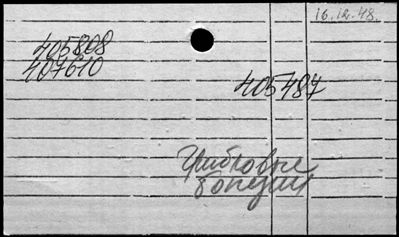 16.12.48.
405808
407610
405487
Грибковые
болезни